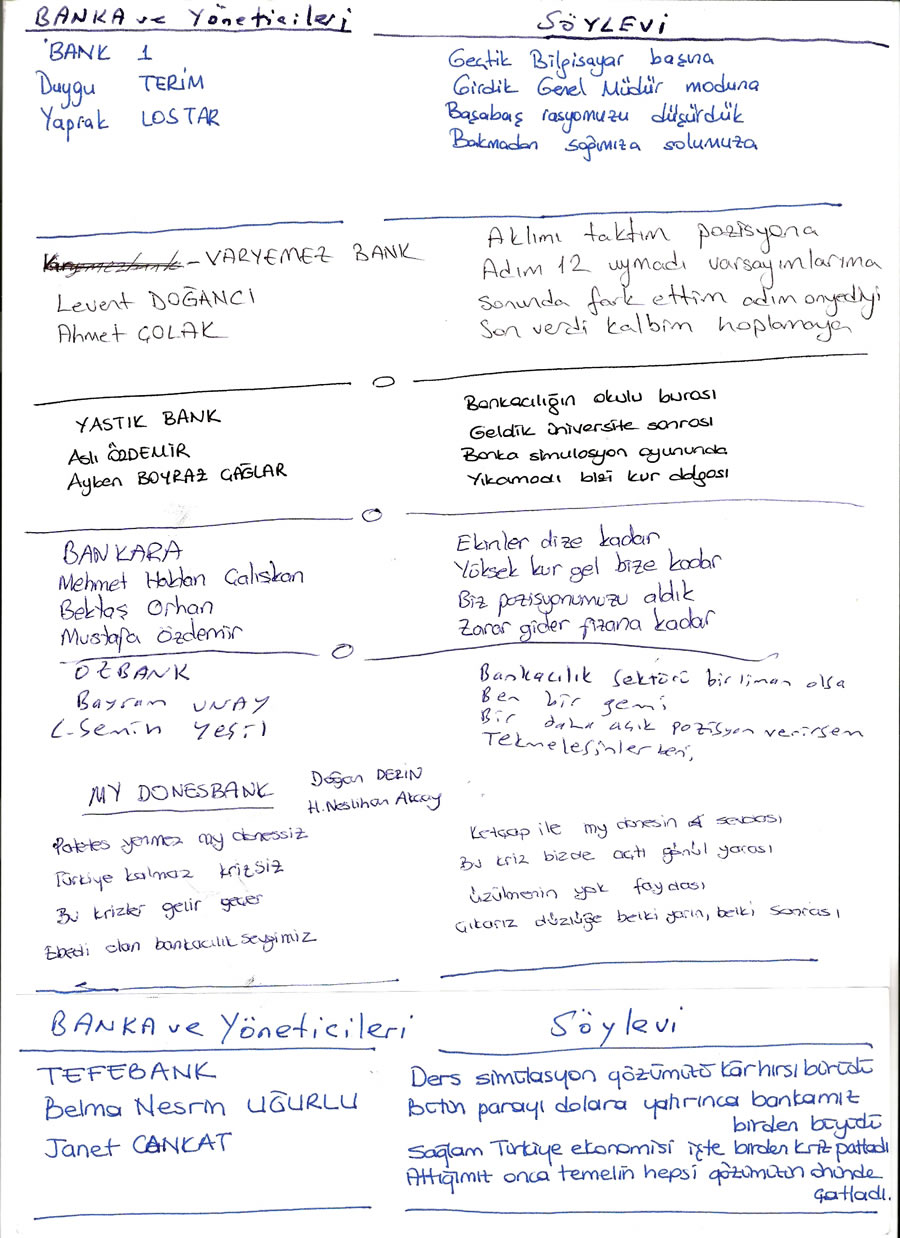 BANKA ve Yöneticileri
SÖYLEVİ
BANK 1
Duygu TERİM
Yaprak LOSTAR
Geçtik Bilgisayar başına
Girdik Genel Müdür moduna
Başabaş rasyomuzu düşürdük
Bakmadan sağımıza solumuza
Varyemezbank - VARYEMEZ BANK
Levent DOĞANCI
Ahmet ÇOLAK
Aklımı taktım pozisyona
Adım 12 uymadı varsayımlarıma
Sonunda fark ettim adım onyediyi
Son verdi kalbim hoplamaya
YASTIK BANK
Aslı ÖZDEMİR
Ayben BOYRAZ ÇAĞLAR
Bankacılığın okulu burası
Geldik üniversite sonrası
Banka simulasyon oyununda
Yıkamadı bizi kur dalgası
BANKARA
Mehmet Haktan Çalışkan
Bektaş Orhan
Mustafa Özdemir
Ekinler dize kadar
Yüksek kur gel bize kadar
Biz pozisyonumuzu aldık
Zarar gider fizana kadar
OZBANK
Bayram UNAY
L. Semin Yeşil
Bankacılık Sektörü bir liman olsa
Ben bir gemi
Bir daha açık pozisyon verirsem
Teknelesinler beni,
MY DONESBANK
Doğan DERİN
H. Neslihan Akçay
Patates yenmez my donessiz
Türkiye kalmaz krizsiz
Bu krizler gelir geçer
Ebedi olan bankacılık sevgimiz
Ketçap ile my donesin sevdası
Bu kriz bizde açtı gönül yarası
üzülmenin yok faydası
Çıkarız düzlüğe belki yarın, belki sonrası
BANKA ve Yöneticileri
Söylevi
TEFEBANK
Belma Nesrin UĞURLU
Janet CANKAT
Ders simülasyon gözümüzü kar hırsı bürüdü
Bütün parayı dolara yatırınca bankamız
birden büyüdü
Sağlam Türkiye ekonomisi işte birden kriz patladı
Attığımız onca temelin hepsi gözümüzün önünde
çatladı.